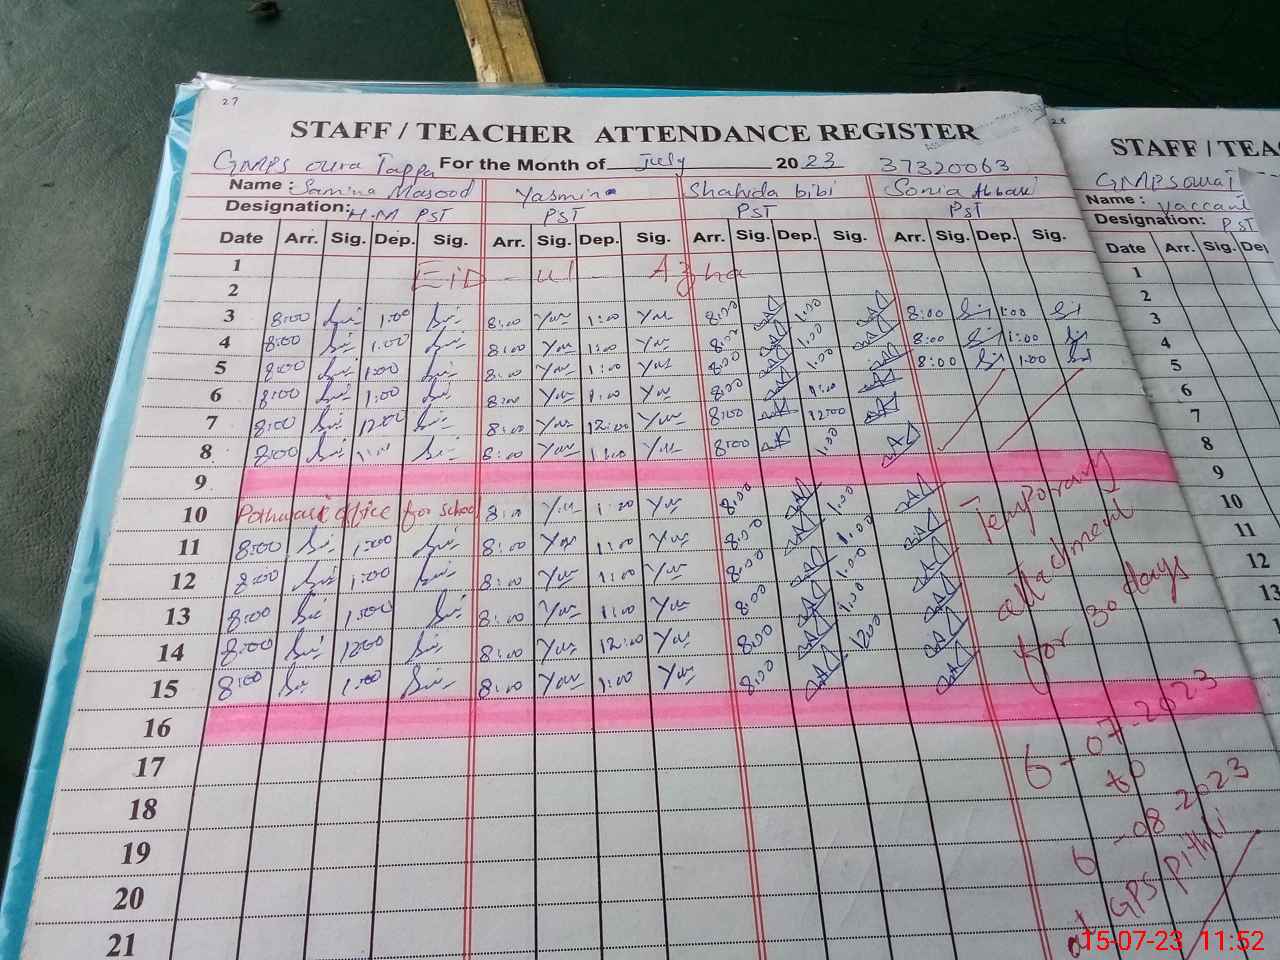 27
STAFF / TEACHER ATTENDANCE REGISTER
GMPS oura Tappa For the Month of July 2023 37320063
Name : Samina Masood Yasmin Shahida bibi Sonia Abbasi
Designation: H.M PST PST PST PST
Date Arr. Sig. Dep. Sig. Arr. Sig. Dep. Sig. Arr. Sig. Dep. Sig. Arr. Sig. Dep. Sig.
1 EiD - ul Azha
2
3 8:00 1:00 8:00 1:00 8:00 1:00 8:00 1:00
4 8:00 1:00 8:00 1:00 8:00 1:00 8:00 1:00
5 8:00 1:00 8:00 1:00 8:00 1:00 8:00 1:00
6 8:00 1:00 8:00 1:00 8:00 1:00
7 8:00 12:00 8:00 12:00 8:00 12:00
8 8:00 1:00 8:00 1:00 8:00 1:00
9
10 office for school 8:00 1:00 8:00 1:00
11 8:00 1:00 8:00 1:00 8:00 1:00
12 8:00 1:00 8:00 1:00 8:00 1:00
13 8:00 1:00 8:00 1:00 8:00 1:00
14 8:00 1200 8:00 12:00 8:00 1200
15 8:00 1:00 8:00 1:00 8:00
16
17
18
19
20
21
Temporary
attachment
for 30 days
6-07-2023
to
6-08-2023
at GPS Pithli
28
STAFF / TEA
GMPS
Name : vaccant
Designation: PST
Date Arr. Sig.
1
2
3
4
5
6
7
8
9
10
11
12
13
15-07-23 11:52